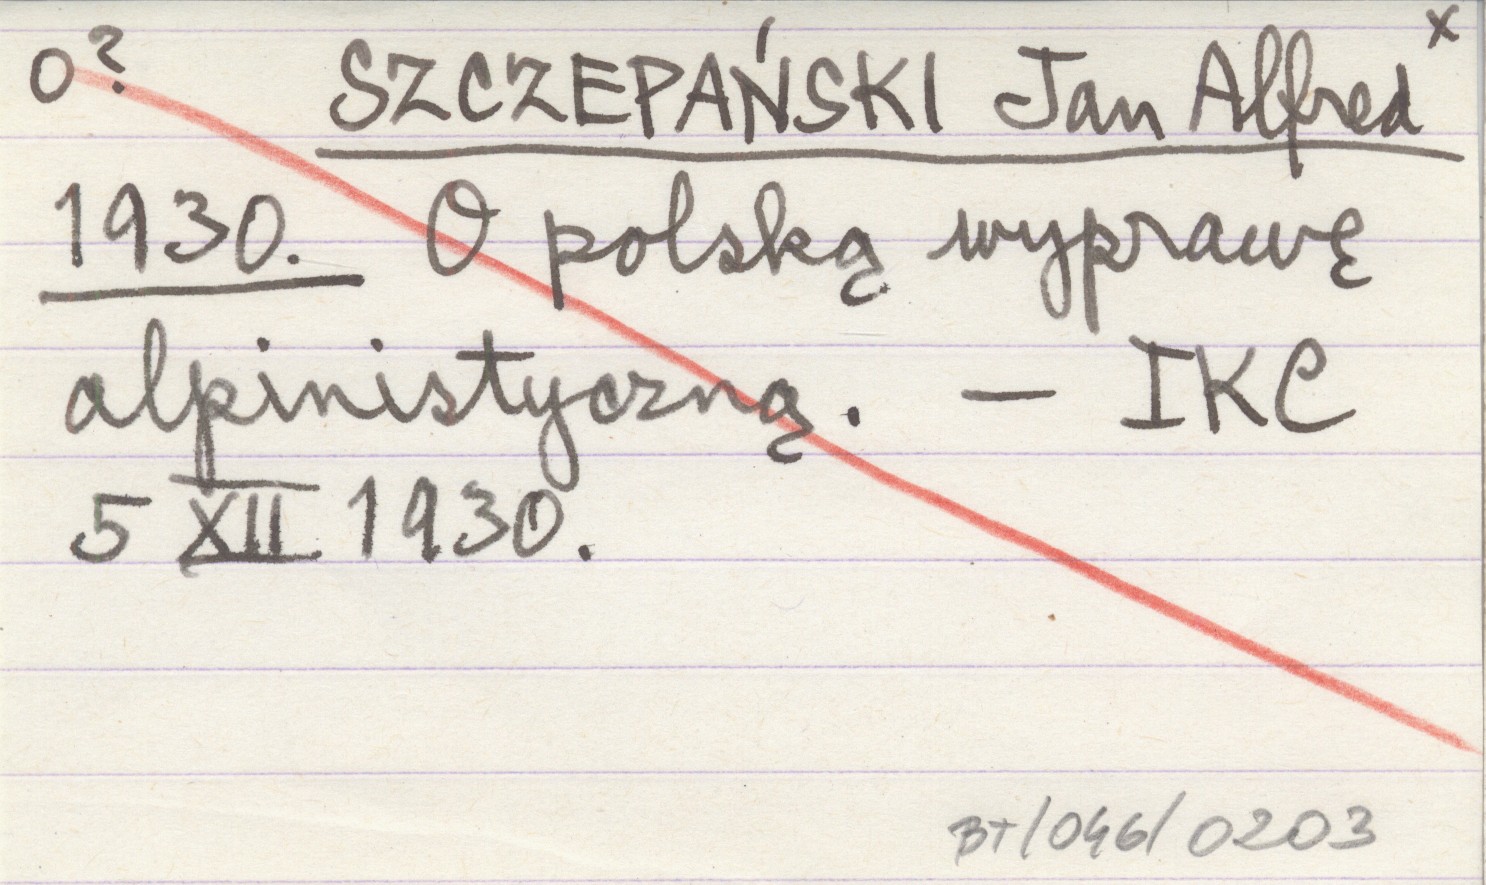 o? SZCZEPAŃSKI Jan Alfred x
1930. O polską wyprawę
alpinistyczną. — IKC
5 XII 1930.
BT/046/0203